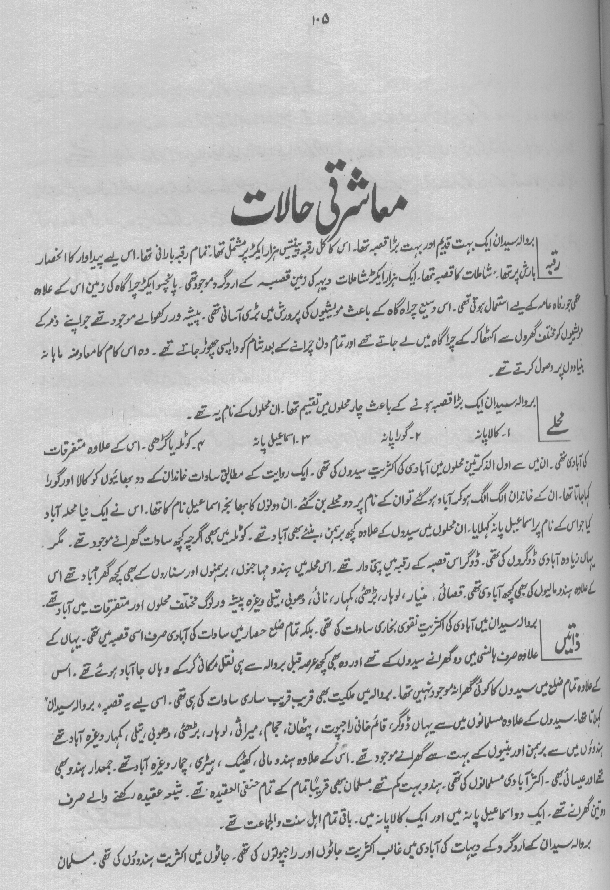 ۱۰۵
معاشرتی حالات
رقبہ
بروالہ سیدان ایک بہت قدیم اور بہت بڑا قصبہ تھا۔ اس کا کل رقبہ پینتیس ہزار ایکڑ پر مشتمل تھا۔ تمام رقبہ بارانی تھا۔ اس لیے پیداوار کا انحصار
بارش پر تھا۔ شاملات کا قصبہ تھا۔ ایک ہزار ایکڑ شاملات دیہہ کی زمین قصبہ کے اردگرد موجود تھی۔ پانچسو ایکڑ چراگاہ کی زمین اس کے علاوہ
تھی جو رفاہ عامہ کے لیے استعمال ہوتی تھی۔ اس وسیع چراہ گاہ کے باعث مویشیوں کی پرورش میں بڑی آسانی تھی۔ پیشہ ور رکھوالے موجود تھے جو اپنے ذمہ کے
مویشیوں کو مختلف گھروں سے اکٹھا کر کے چراگاہ میں لے جاتے تھے اور تمام دن چرانے کے بعد شام کو واپس چھوڑ جاتے تھے۔ وہ اس کام کا معاوضہ ماہانہ
بنیادوں پر وصول کرتے تھے۔
محلے
بروالہ سیدان ایک بڑا قصبہ ہونے کے باعث چار محلوں میں تقسیم تھا۔ ان محلوں کے نام یہ تھے۔
۱۔ کالا پانہ ۲۔ گورا پانہ ۳۔ اسماعیل پانہ ۴۔ کوٹلہ یا گڑھی۔ اس کے علاوہ متفرقات
کی آبادی تھی۔ ان میں سے اول الذکر تین محلوں میں آبادی کی اکثریت سیدوں کی تھی۔ ایک روایت کے مطابق سادات خاندان کے دو بھائیوں کو کالا اور گورا
کہا جاتا تھا۔ ان کے خاندان الگ الگ ہو کر آباد ہو گئے تو ان کے نام پر دو محلے بن گئے۔ ان دونوں کا بھانجہ اسماعیل نام کا تھا۔ اس نے ایک نیا محلہ آباد
کیا جو اس کے نام پر اسماعیل پانہ کہلایا۔ ان محلوں میں سیدوں کے علاوہ کچھ برہمن، بنئے بھی آباد تھے۔ کوٹلہ میں بھی اگرچہ کچھ سادات گھرانے موجود تھے۔ مگر
یہاں زیادہ آبادی ڈوگروں کی تھی۔ ڈوگر اس قصبہ کے رقبہ میں پتی دار تھے۔ اس محلہ میں ہندو مہاجنوں، برہمنوں اور سناروں کے بھی کچھ گھر آباد تھے اس
کے علاوہ ہندو مالیوں کی بھی کچھ آبادی تھی۔ قصائی، منیار، لوہار، بڑھئی، کمہار، نائی، دھوبی، تیلی وغیرہ پیشہ ور لوگ مختلف محلوں اور متفرقات میں آباد تھے۔
ذاتیں
بروالہ سیدان میں آبادی کی اکثریت نقوی بخاری سادات کی تھی۔ بلکہ تمام ضلع حصار میں سادات کی آبادی صرف اسی قصبہ میں تھی۔ یہاں کے
علاوہ صرف ہانسی میں دو گھرانے سیدوں کے تھے اور وہ بھی کچھ عرصہ قبل بروالہ سے ہی نقل مکانی کر کے وہاں جا آباد ہوئے تھے۔ اس
کے علاوہ تمام ضلع میں سیدوں کا کوئی گھرانہ موجود نہیں تھا۔ بروالہ میں ملکیت بھی قریب قریب ساری سادات کی ہی تھی۔ اسی لیے یہ قصبہ، بروالہ سیدان"
کہلاتا تھا۔ سیدوں کے علاوہ مسلمانوں میں سے یہاں ڈوگر، قائم خانی راجپوت، پٹھان، حجام، میراثی، لوہار، بڑھئی، دھوبی، تیلی، کمہار وغیرہ آباد تھے
ہندوؤں میں سے برہمن اور بنیوں کے بہت سے گھرانے موجود تھے۔ اس کے علاوہ ہندو مالی، کھٹیک، ہیڑی، چمار وغیرہ آباد تھے۔ جمعدار ہندو بھی
تھے اور عیسائی بھی۔ اکثر آبادی مسلمانوں کی تھی۔ ہندو بہت کم تھے۔ مسلمان بھی قریباً تمام کے تمام حنفی العقیدہ تھے۔ شیعہ عقیدہ رکھنے والے صرف
دو تین گھرانے تھے۔ ایک دو اسماعیل پانہ میں اور ایک کالا پانہ میں۔ باقی تمام اہل سنت والجماعت تھے۔
بروالہ سیدان کے اردگرد کے دیہات کی آبادی میں غالب اکثریت جاٹوں اور راجپوتوں کی تھی۔ جاٹوں میں اکثریت ہندوؤں کی تھی۔ مسلمان